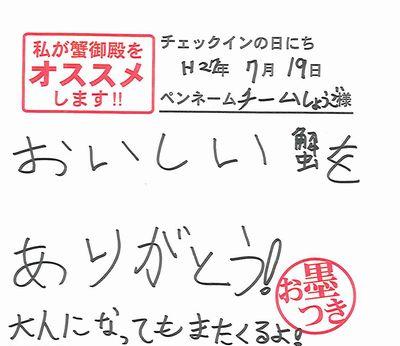 私が蟹御殿を
オススメ
します!!
チェックインの日にち
H27年 7月 19日
ペンネームチームしょうご様
おいしい蟹を
ありがとう!
お墨つき
大人になってもまたくるよ!